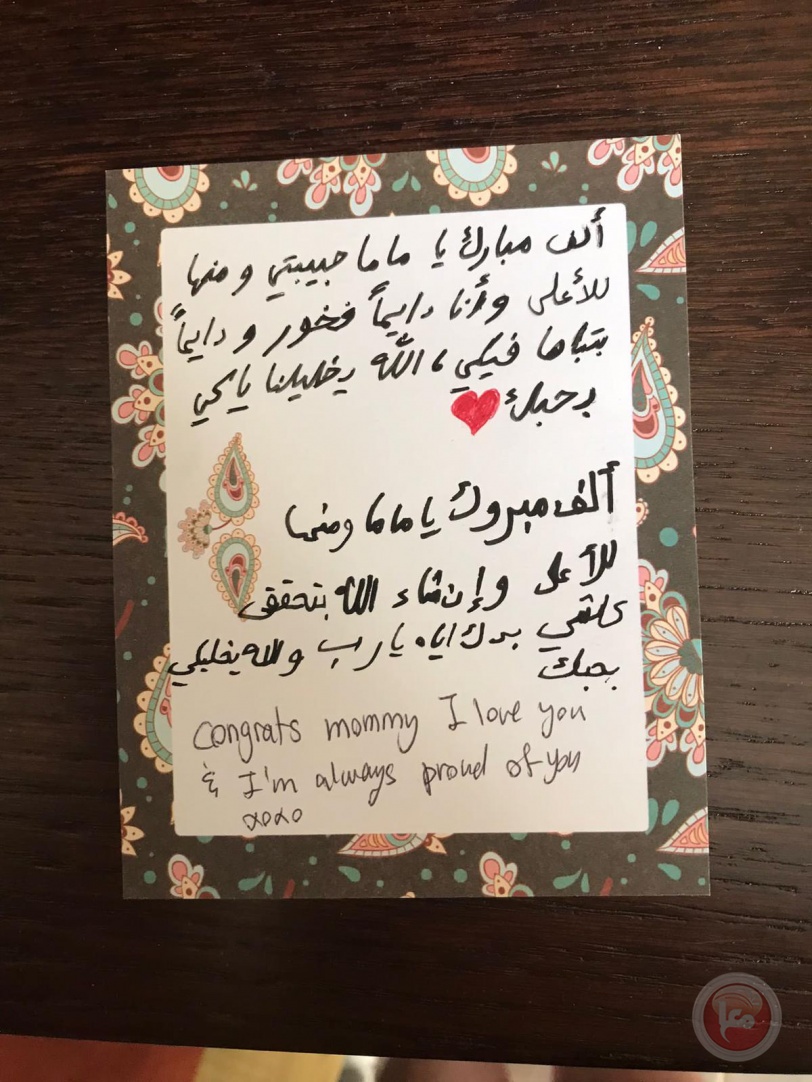 ألف مبارك يا ماما حبيبتي ومنها
للأعلى وأنا دايماً فخور ودايماً
بتباها فيكي، الله يخليلنا ياكي
بحبك
ألف مبروك يا ماما ومنها
للأعلى وإن شاء الله بتحققي
كلشي بدك اياه يا رب والله يخليكي
بحبك
congrats mommy I love you
& I'm always proud of you
xoxo
معا